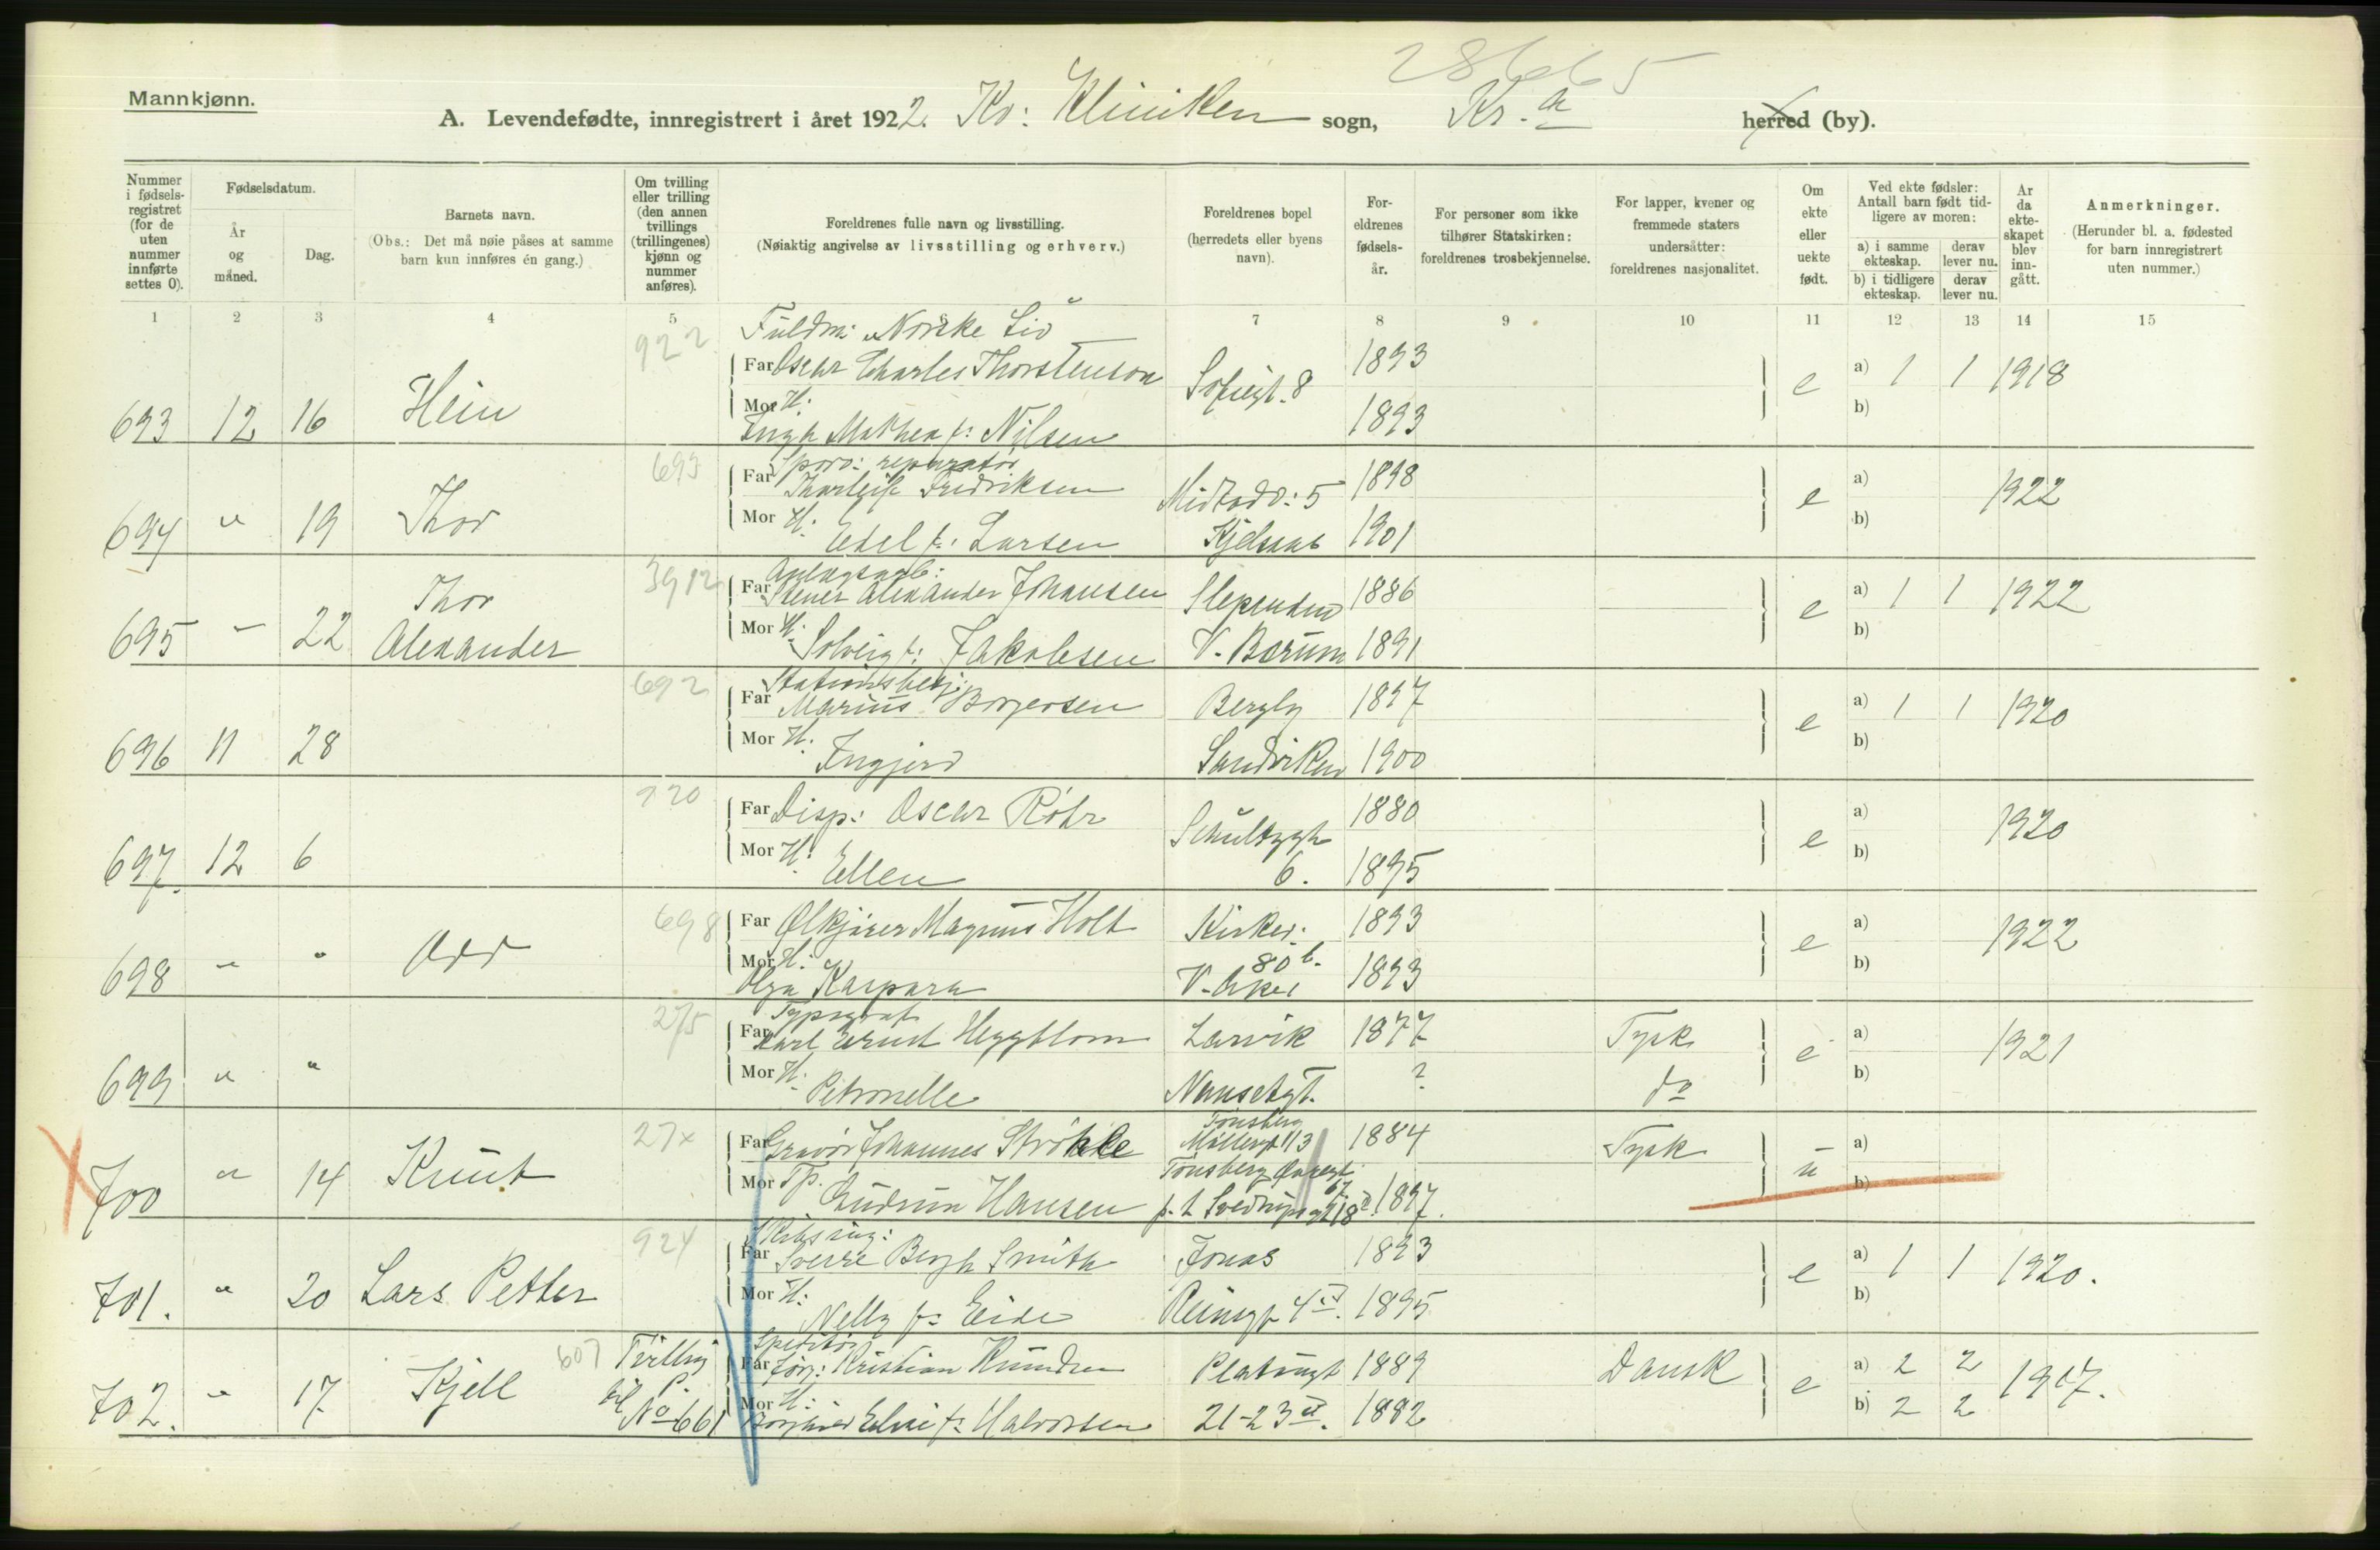 28665
Mannkjønn.
A. Levendefødte, innregistrert i året 1922. Kv: Kliniken sogn, Kr.a herred (by).
Nummer i fødselsregistret (for de uten nummer innførte settes 0).
Fødselsdatum.
År og måned.
Dag.
Barnets navn.
(Obs.: Det må nøie påses at samme barn kun innføres én gang.)
Om tvilling eller trilling (den annen tvillings (trillingenes) kjønn og nummer anføres).
Foreldrenes fulle navn og livsstilling.
(Nøiaktig angivelse av livsstilling og erhverv.)
Foreldrenes bopel (herredets eller byens navn).
Foreldrenes fødselsår.
For personer som ikke tilhører Statskirken: foreldrenes trosbekjennelse.
For lapper, kvener og fremmede staters undersåtter: foreldrenes nasjonalitet.
Om ekte eller uekte født.
Ved ekte fødsler: Antall barn født tidligere av moren:
a) i samme ekteskap. derav lever nu.
b) i tidligere ekteskap. derav lever nu.
Ar da ekteskapet blev inngått.
Anmerkninger.
(Herunder bl. a. fødested for barn innregistrert uten nummer.)
1 2 3 4 5 6 7 8 9 10 11 12 13 14 15
922 Fuldm: "Norske Liv"
Far Oscar Charles Thorstenson Sofiegt. 8 1893 e a) 1 1 1918
693 12 16 Hein Mor H: b)
Mathea f: Nilsen 1893
693 Sporv: reparatør
Far Thorleif Fredriksen Midtodv: 5 1898 e a) 1922
694 " 19 Thor Mor H: Edel f: Larsen Kjelsaas 1901 b)
3912 Anlægsarb:
Far Stener Alexander Johansen Slependen 1886 e a) 1 1 1922
695 - 22 Thor Alexander Mor H: Solveig f: Jakobsen V. Bærum 1891 b)
692 Stationsbetj:
Far Marius Borgersen Bergly 1897 e a) 1 1 1920
696 11 28 Mor H: Ingjerd Sandviken 1900 b)
920 Far Disp: Oscar Röhr 1880 e a) 1920
697. 12 6 Mor H: Ellen Schultzgt 6. 1895 b)
698 Far Ølkjører Magnus Holt Kirkev: 80 b. 1893 e a) 1922
698 " " Odd Mor H: Olga Kaspara V. Aker 1893 b)
275 Typograf
Far Karl Ernst Heggblom Larvik 1877 Tysk e a) 1921
699 " " Mor H: Petronelle Nansetgt. ? do b)
27x Far Gravør Johannes Ströhke Tønsberg Møllergt 113 1884 Tysk u a)
700 " 14 Knut Mor Tp. Gudrun Hansen Tønsberg 67 p.t. Sverdrupsgt 18 1897. b)
924
Far Sverre Bergh Smith Jonas 1893 e a) 1 1 1920.
701. " 20 Lars Petter Mor H: Nelly f: Eide Reinsgt 4 1895 b)
607 Tvilling Speditør
Far Jørg: Kristian Knudsen Platousgt 1889 Dansk e a) 2 2 1917.
702. " 17 Kjell til P. No 661 Mor H: f: Halvorsen 21-23 1882 b) 2 2